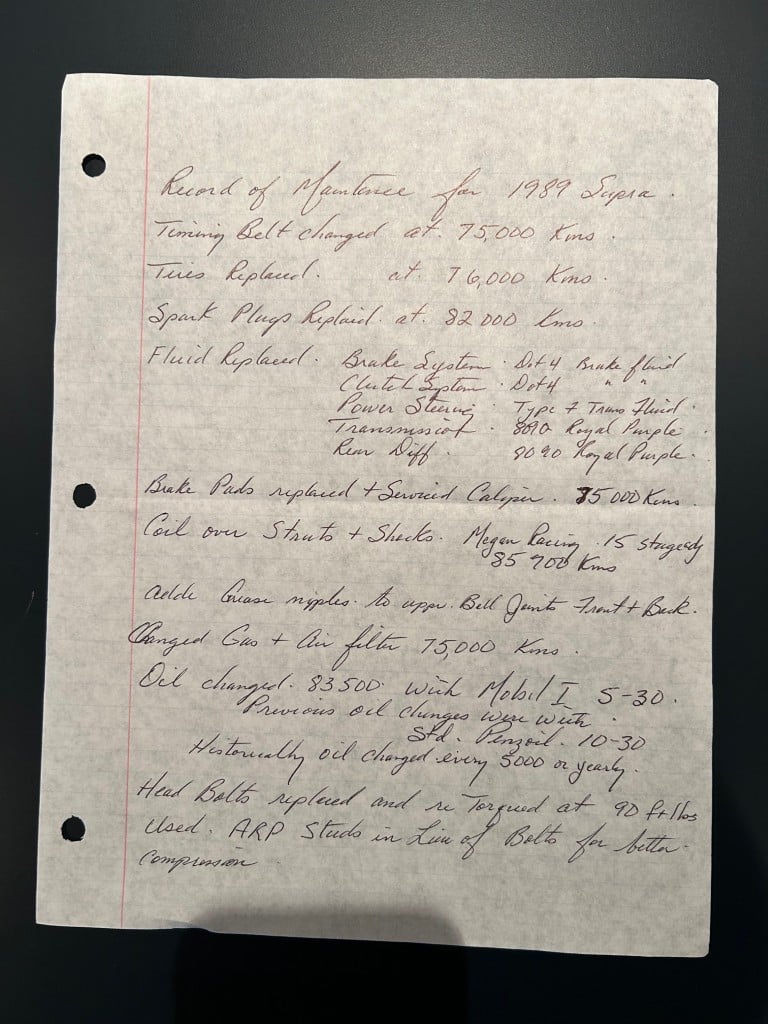 Record of Maintence for 1989 Supra.
Timing Belt changed at 75,000 Kms.
Tires Replaced. at. 76,000 Kms.
Spark Plugs Replaid. at. 82000 Kms.
Fluid Replaced. Brake System. Dot 4 Brake fluid
Clutch System. Dot 4 " "
Power Steering Type F Trans Fluid.
Transmission. 8090 Royal Purple.
Rear Diff. 8090 Royal Purple.
Brake Pads replaced + Serviced Caliper. 85000 Kms.
Coil over Struts + Shocks. Megan Racing. 15
85900 Kms
adde Grease nipples. to upper. Ball Joints Front + Back.
Changed Gas + Air filter 75,000 Kms.
Oil changed. 83500. with Mobil I 5-30.
Previous oil changes were with.
Std. Penzoil. 10-30
Historically oil changed every 5000 or yearly.
Head Bolts replaced and re Torqued at 90 ft lbs
Used. ARP Studs in Lieu of Bolts for better.
compression.